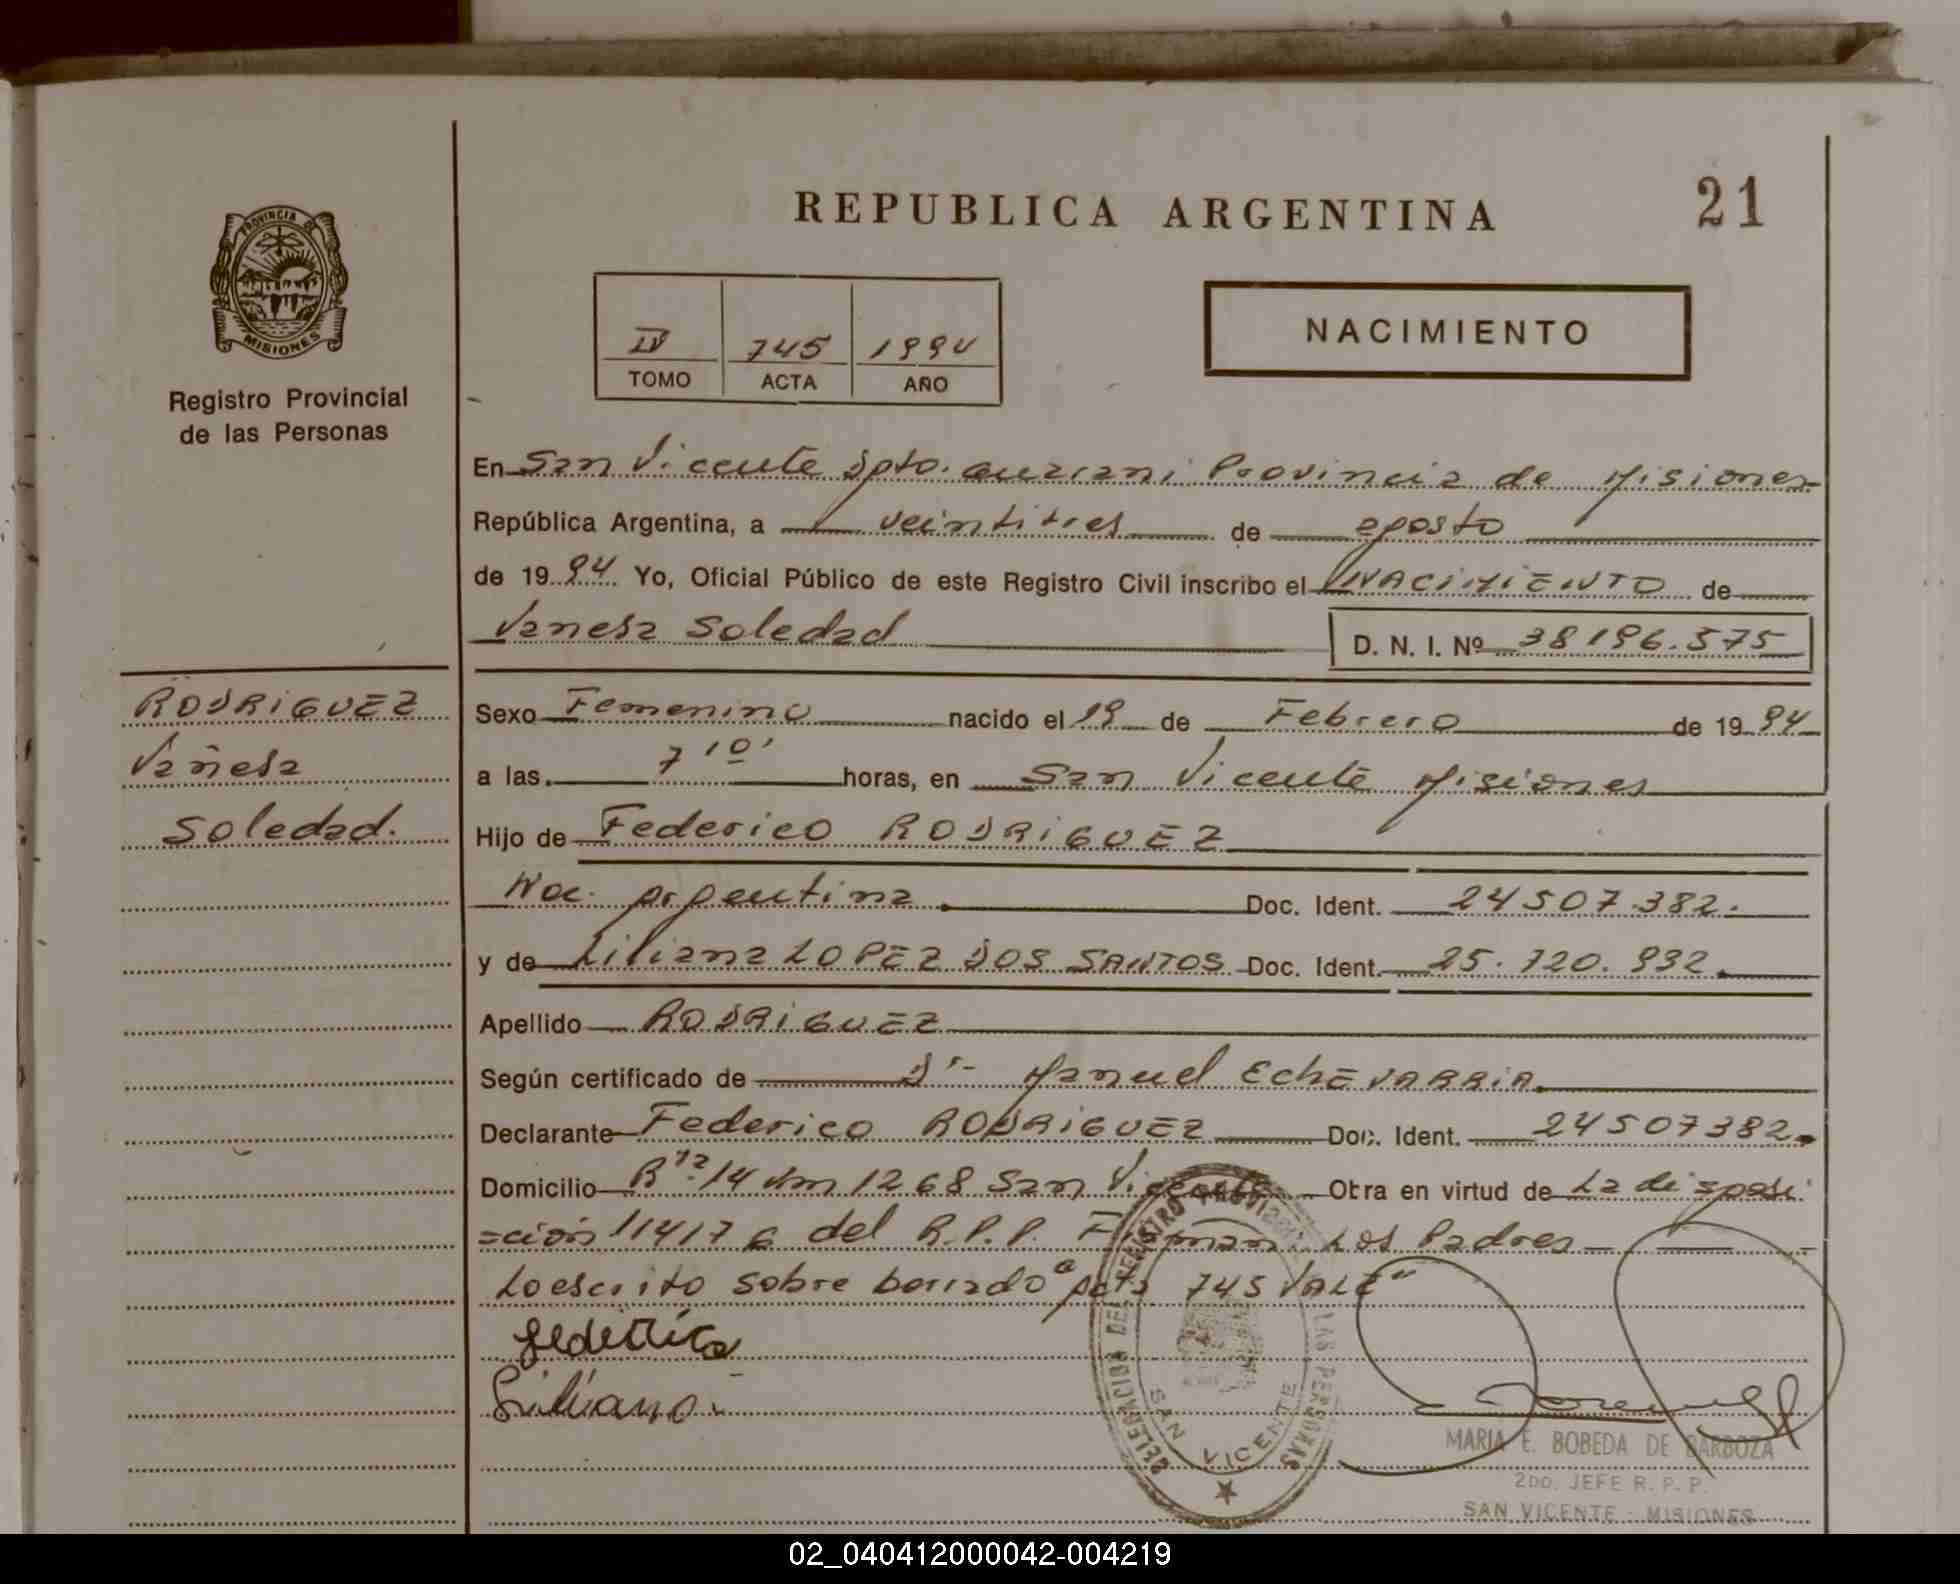 REPUBLICA ARGENTINA
21
PROVINCIA DE
MISIONES
Registro Provincial
de las Personas
IV 745 1994
TOMO ACTA AÑO
NACIMIENTO
En San Vicente Dpto. Guarani Provincia de Misiones
República Argentina, a veintitres de agosto
de 1994 Yo, Oficial Público de este Registro Civil inscribo el NACIMIENTO de
Vanesa Soledad
D. N. I. Nº 38196.575
RODRIGUEZ
Vanesa
Soledad.
Sexo Femenino nacido el 19 de Febrero de 1994
a las 7 10' horas, en San Vicente Misiones
Hijo de Federico RODRIGUEZ
Nac. argentina Doc. Ident. 24507.382.
y de Liliana LOPEZ DOS SANTOS Doc. Ident. 25.720.932.
Apellido RODRIGUEZ
Según certificado de Dr- Manuel EchEVARRIA
Declarante Federico RODRIGUEZ Doc. Ident. 24507382
Domicilio 14 Km 1268 San Vicente Otra en virtud de La disposi
=ción del R.P.P. Firman: Los Padres
Lo escrito sobre borrado "acta 745 VALE"
Federico
Liliana
DELEGACION DEL REGISTRO PROVINCIAL DE LAS PERSONAS
SAN VICENTE
MARIA E. BOBEDA DE BARBOZA
2DO. JEFE R. P. P.
SAN VICENTE - MISIONES
02_040412000042-004219